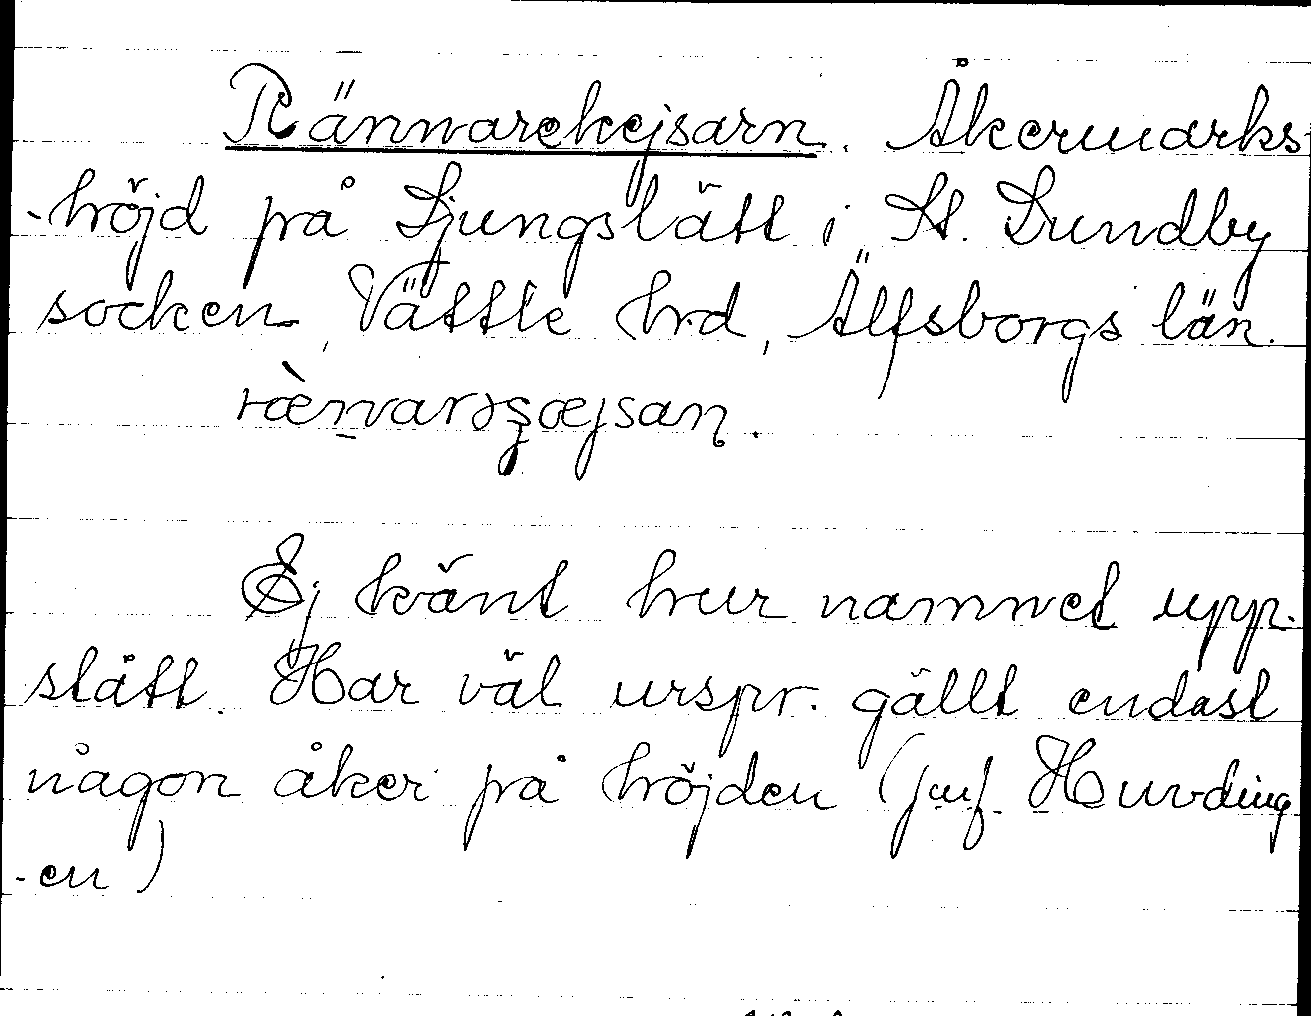 Rännarekejsarn. Åkermarks-
-höjd på Ljungslätt i St. Lundby
socken, Vättle hrd, Älfsborgs län.
Ej känt hur namnet upp-
stått. Har väl urspr. gällt endast
någon åker på höjden (jmf. Huvding
-en)